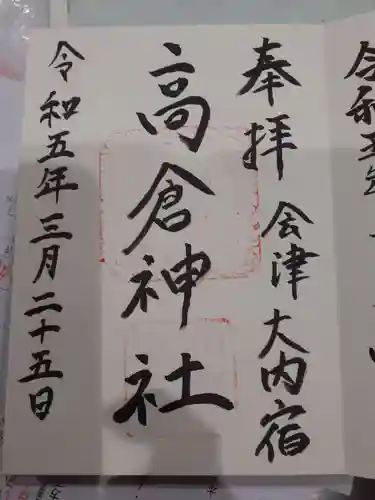 奉拝 会津大内宿
高倉神社
令和五年三月二十五日
令和五年